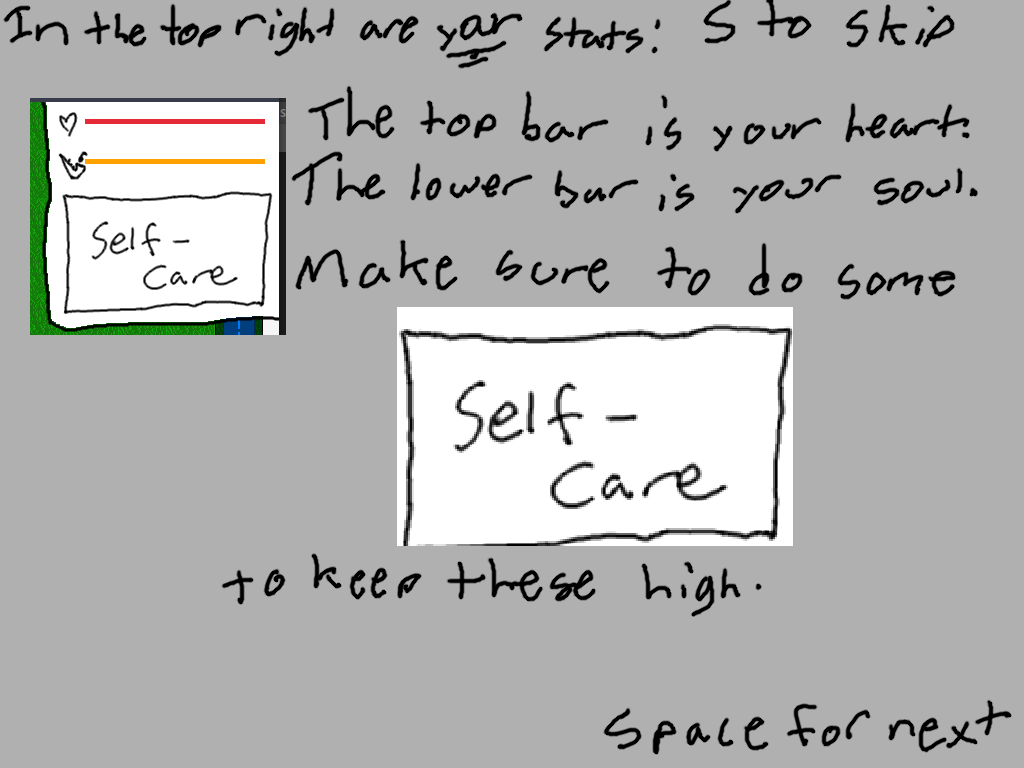 In the top right are yar stats: S to skip
The top bar is your heart.
The lower bar is your soul.
Self-
Care
Make sure to do some
Self-
Care
to keep these high.
Space for next